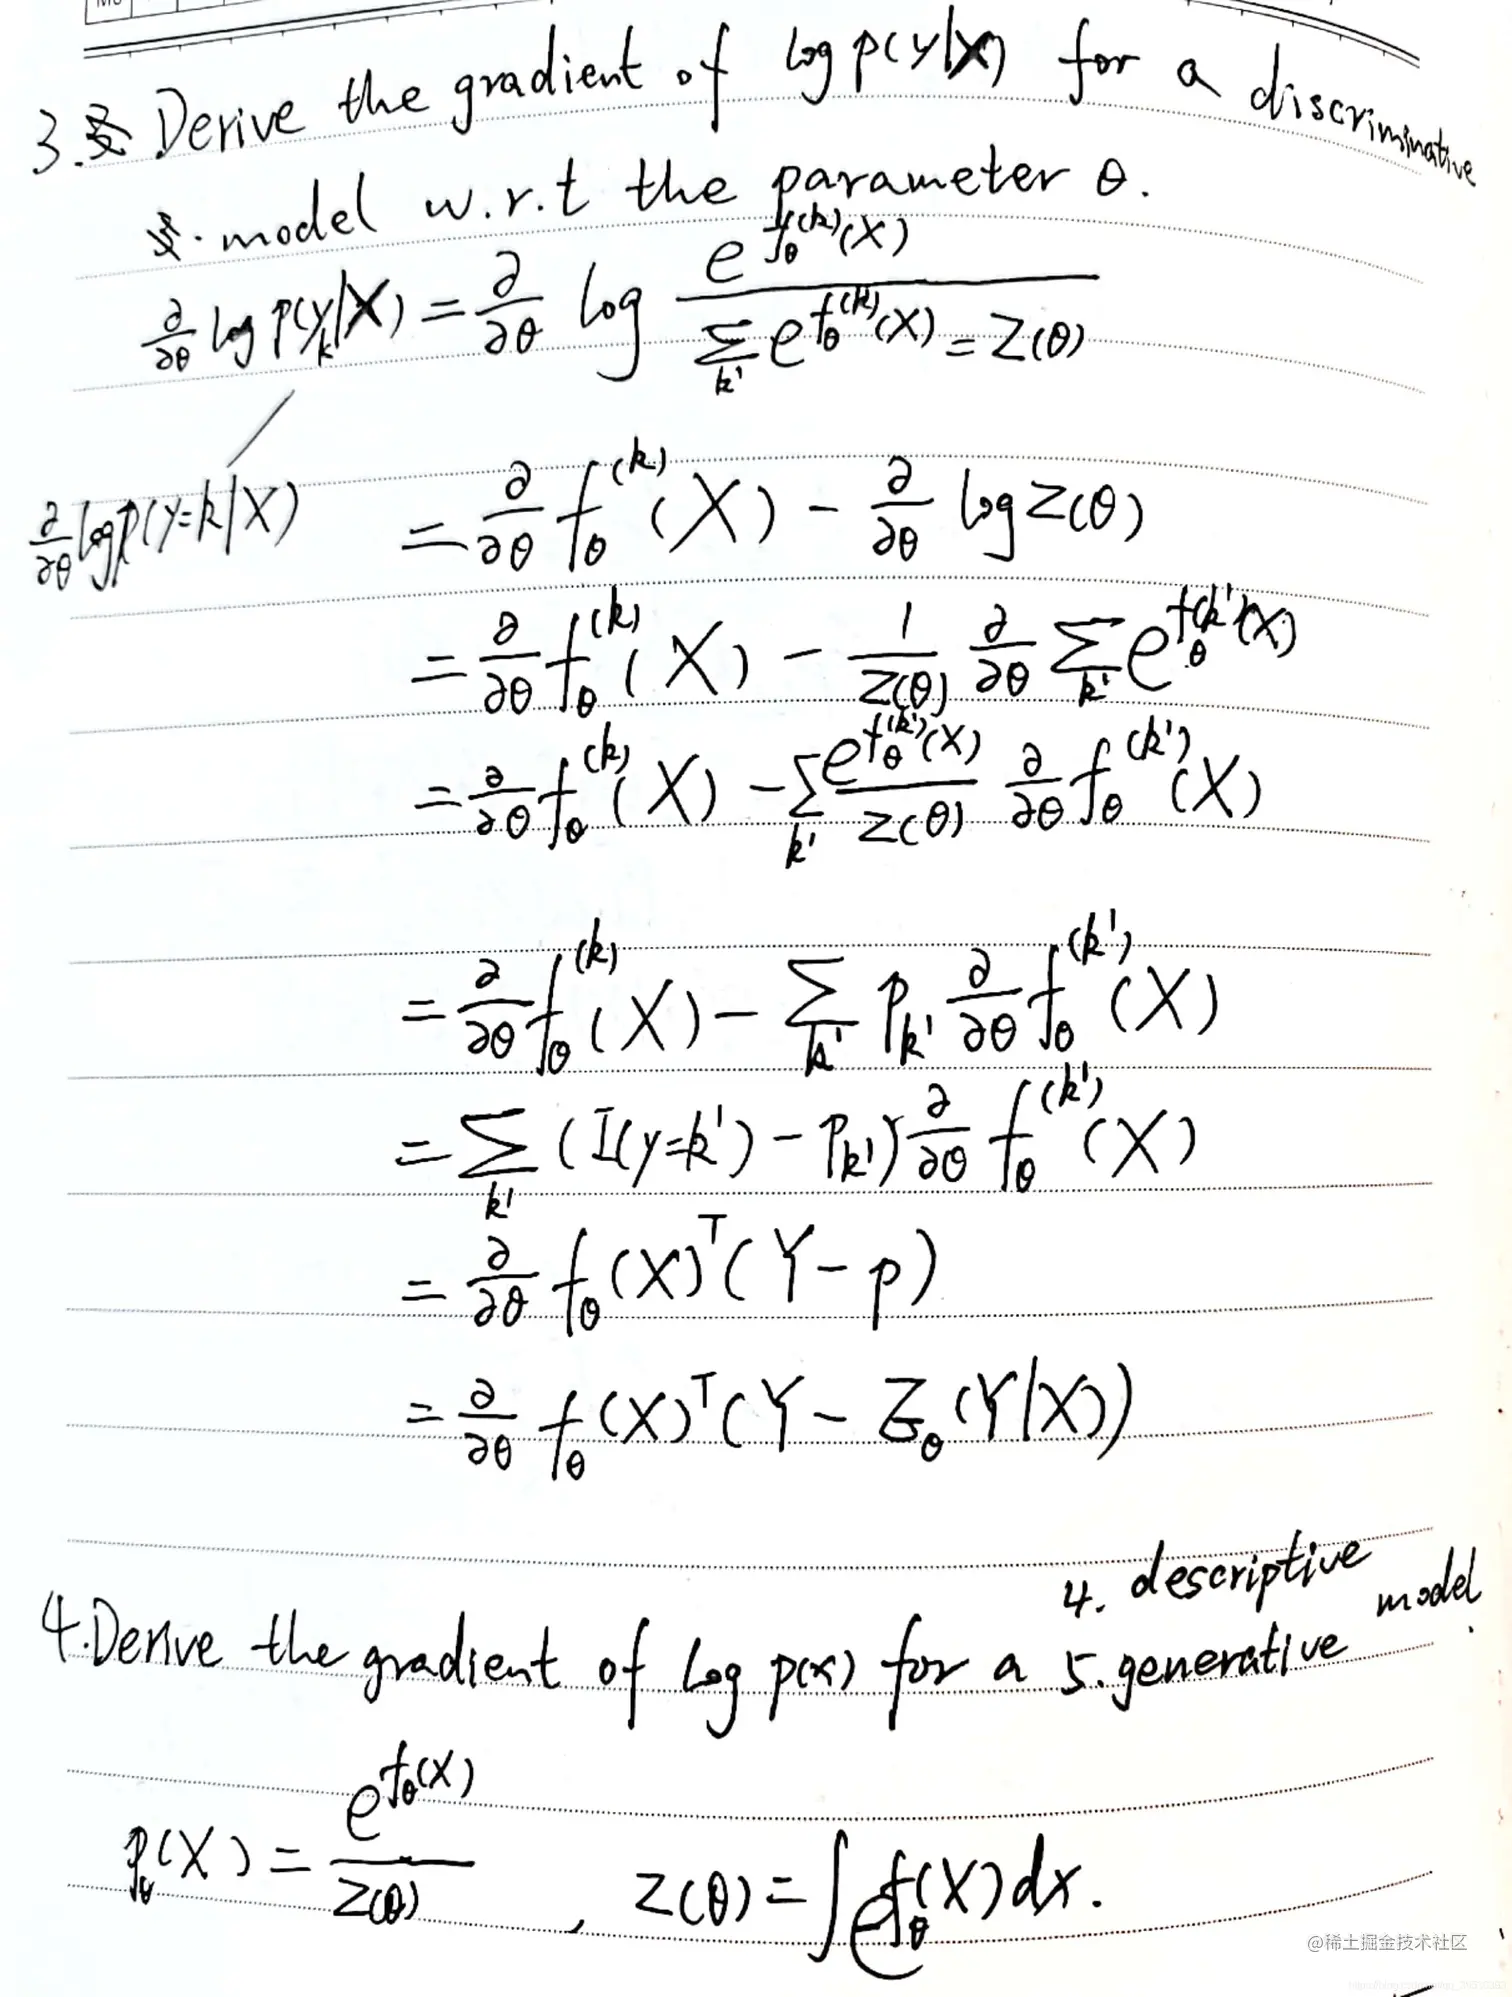 3. Derive the gradient of log p(y|X) for a discriminative
model w.r.t the parameter θ.
∂/∂θ log p(y_k|X) = ∂/∂θ log e^{f_θ^{(k)}(X)} / Σ_{k'} e^{f_θ^{(k)}(X)} = Z(θ)
∂/∂θ log p(y=k|X) = ∂/∂θ f_θ^{(k)}(X) - ∂/∂θ log Z(θ)
= ∂/∂θ f_θ^{(k)}(X) - 1/Z(θ) ∂/∂θ Σ_{k'} e^{f_θ^{(k')}(X)}
= ∂/∂θ f_θ^{(k)}(X) - Σ_{k'} e^{f_θ^{(k')}(X)}/Z(θ) ∂/∂θ f_θ^{(k')}(X)
= ∂/∂θ f_θ^{(k)}(X) - Σ_{k'} p_{k'} ∂/∂θ f_θ^{(k')}(X)
= Σ_{k'} (I(y=k') - p_{k'}) ∂/∂θ f_θ^{(k')}(X)
= ∂/∂θ f_θ(X)^T (Y - p)
= ∂/∂θ f_θ(X)^T (Y - E_θ(Y|X))
4. descriptive model.
4. Derive the gradient of log p(x) for a 5. generative
p_θ(X) = e^{f_θ(X)} / Z(θ) , Z(θ) = ∫ e^{f_θ(X)} dx.
@稀土掘金技术社区